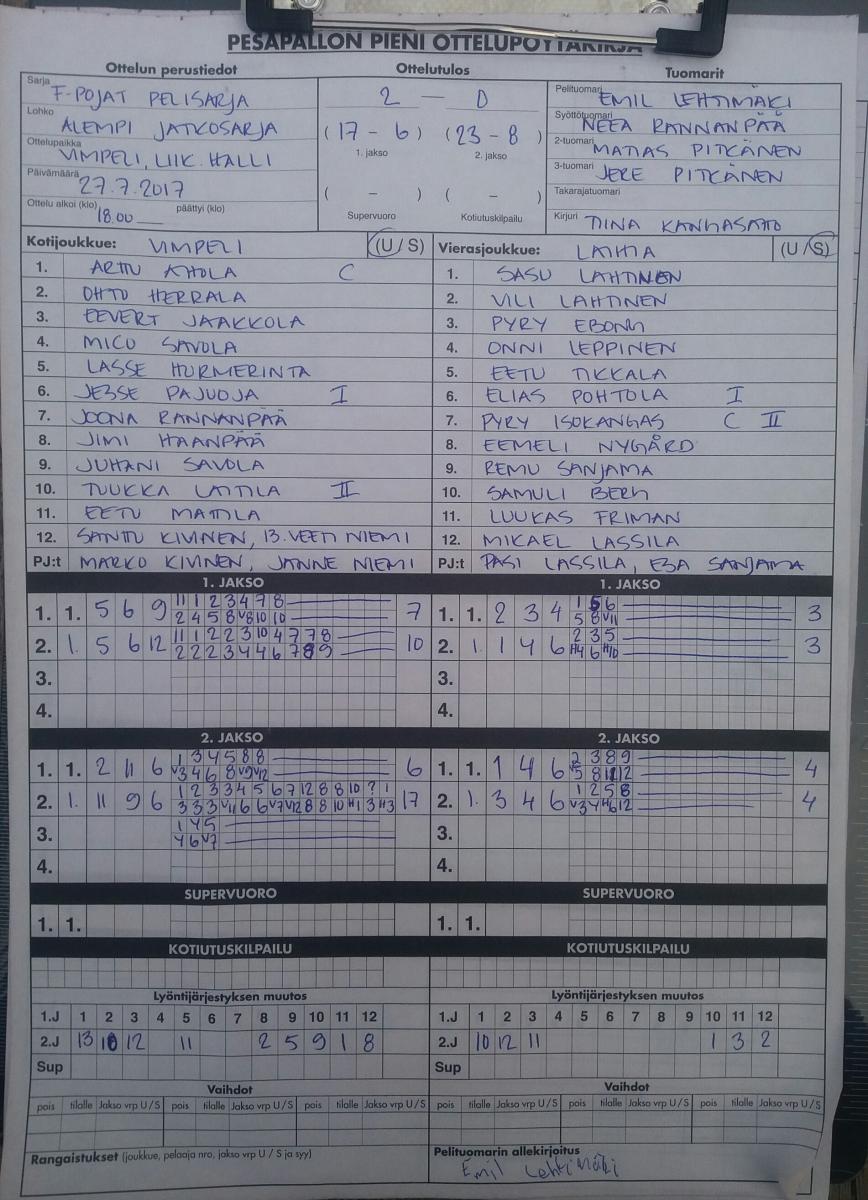 PESÄPALLON PIENI OTTELUPÖYTÄKIRJA
Ottelun perustiedot
Sarja F-POJAT PELISARJA
Lohko ALEMPI JATKOSARJA
Ottelupaikka VIMPELI, LIIK. HALLI
Päivämäärä 27.7.2017
Ottelu alkoi (klo) 18.00 päättyi (klo)
Ottelutulos
2 - 0
(17 - 6) (23 - 8)
1. jakso 2. jakso
( - ) ( - )
Supervuoro Kotiutuskilpailu
Tuomarit
Pelituomari EMIL LEHTIMÄKI
Syöttötuomari NEEA RANNANPÄÄ
2-tuomari MATIAS PITKÄNEN
3-tuomari JERE PITKÄNEN
Takarajatuomari
Kirjuri TIINA KANGASAHO
Kotijoukkue: VIMPELI (U / S)
1. ARTTU AHOLA C
2. OHTO HERRALA
3. EEVERT JAAKKOLA
4. MICO SAVOLA
5. LASSE HURMERINTA
6. JESSE PAJUOJA I
7. JOONA RANNANPÄÄ
8. JIMI HAANPÄÄ
9. JUHANI SAVOLA
10. TUUKKA LATTILA II
11. EETU MATTILA
12. SANTTU KIVINEN, 13. VEETI NIEMI
PJ:t MARKO KIVINEN, JANNE NIEMI
Vierasjoukkue: LAIHIA (U / S)
1. SASU LAHTINEN
2. VILI LAHTINEN
3. PYRY EBONG
4. ONNI LEPPINEN
5. EETU TIKKALA
6. ELIAS POHTOLA I
7. PYRY ISOKANGAS C II
8. EEMELI NYGÅRD
9. REMU SANJAMA
10. SAMULI BERG
11. LUUKAS FRIMAN
12. MIKAEL LASSILA
PJ:t PASI LASSILA, ESA SANJAMA
1. JAKSO
1. 1. 5 6 9 11 1 2 3 4 7 8 7
2 4 5 8 V8 10 10
2. 1. 5 6 12 11 1 2 2 3 10 4 7 7 8 10
2 2 2 3 4 4 6 7 8 9
3.
4.
1. JAKSO
1. 1. 2 3 4 1 5 6 3
5 8 V11
2. 1. 1 4 6 2 3 5 3
H4 6 H10
3.
4.
2. JAKSO
1. 1. 2 11 6 1 3 4 5 8 8 6
V3 4 6 8 V9 V12
2. 1. 11 9 6 1 2 3 3 4 5 6 7 12 8 8 10 ? 1 17
3 3 3 V11 6 6 V7 V12 8 8 10 H1 3 H3
3. 1 4 5
4 6 V7
4.
2. JAKSO
1. 1. 1 4 6 2 3 8 9 4
V5 8 11 12
2. 1. 3 4 6 1 2 5 8 4
V3 4 H6 12
3.
4.
SUPERVUORO
1. 1.
SUPERVUORO
1. 1.
KOTIUTUSKILPAILU
KOTIUTUSKILPAILU
Lyöntijärjestyksen muutos
1.J 1 2 3 4 5 6 7 8 9 10 11 12
2.J 13 10 12 11 2 5 9 1 8
Sup
Lyöntijärjestyksen muutos
1.J 1 2 3 4 5 6 7 8 9 10 11 12
2.J 10 12 11 1 3 2
Sup
Vaihdot
pois tilalle Jakso vrp U / S pois tilalle Jakso vrp U / S pois tilalle Jakso vrp U / S
Vaihdot
pois tilalle Jakso vrp U / S pois tilalle Jakso vrp U / S pois tilalle Jakso vrp U / S
Rangaistukset (joukkue, pelaaja nro, jakso vrp U / S ja syy)
Pelituomarin allekirjoitus
Emil Lehtimäki